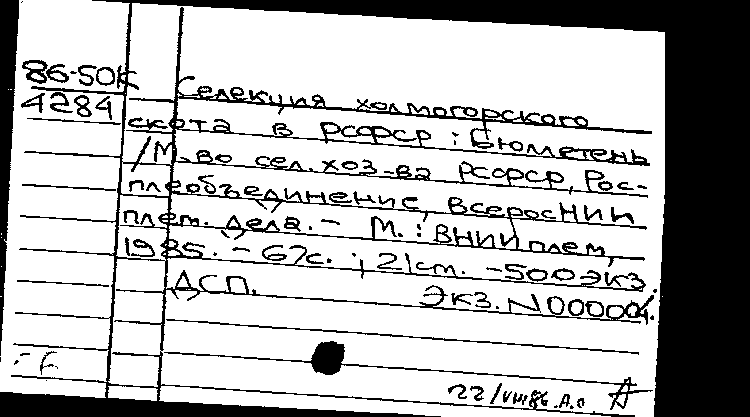 86-50К
4284
Селекция холмогорского
скота в РСФСР : Бюллетень
/М-во сел. хоз-ва РСФСР, Рос-
плеобъединение, ВсеросНИИ
плем. дела. - М. : ВНИИплем,
1985. - 67с. ; 21см. - 500экз.
ДСП. Экз. N00000
22/VIII86